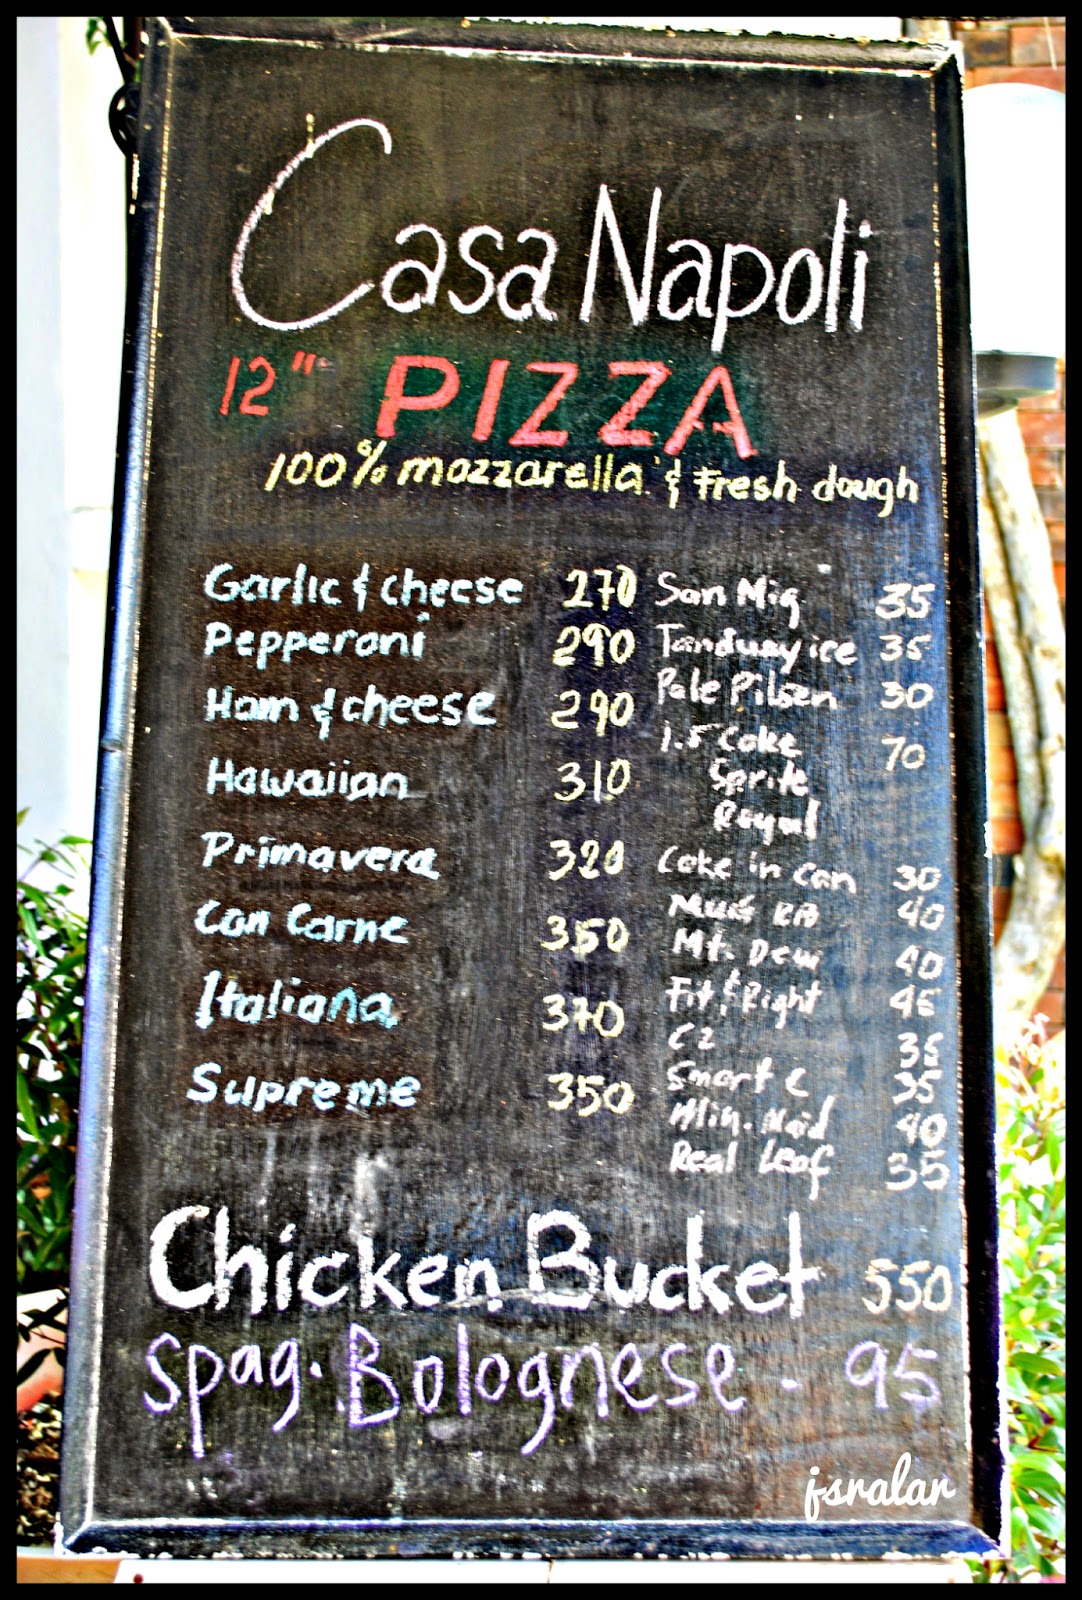 Casa Napoli
12" PIZZA
100% mozzarella & Fresh dough
Garlic & cheese 270
Pepperoni 290
Ham & cheese 290
Hawaiian 310
Primavera 320
Con Carne 350
Italiana 370
Supreme 350
San Mig 35
Tanduay ice 35
Pale Pilsen 30
1.5 Coke 70
Sprite
Royal
Coke in can 30
40
Mt. Dew 40
Fit & Right 45
C2 35
Smart C 35
Min. Maid 40
Real Leaf 35
Chicken Bucket 550
Spag. Bolognese - 95
j-sralar